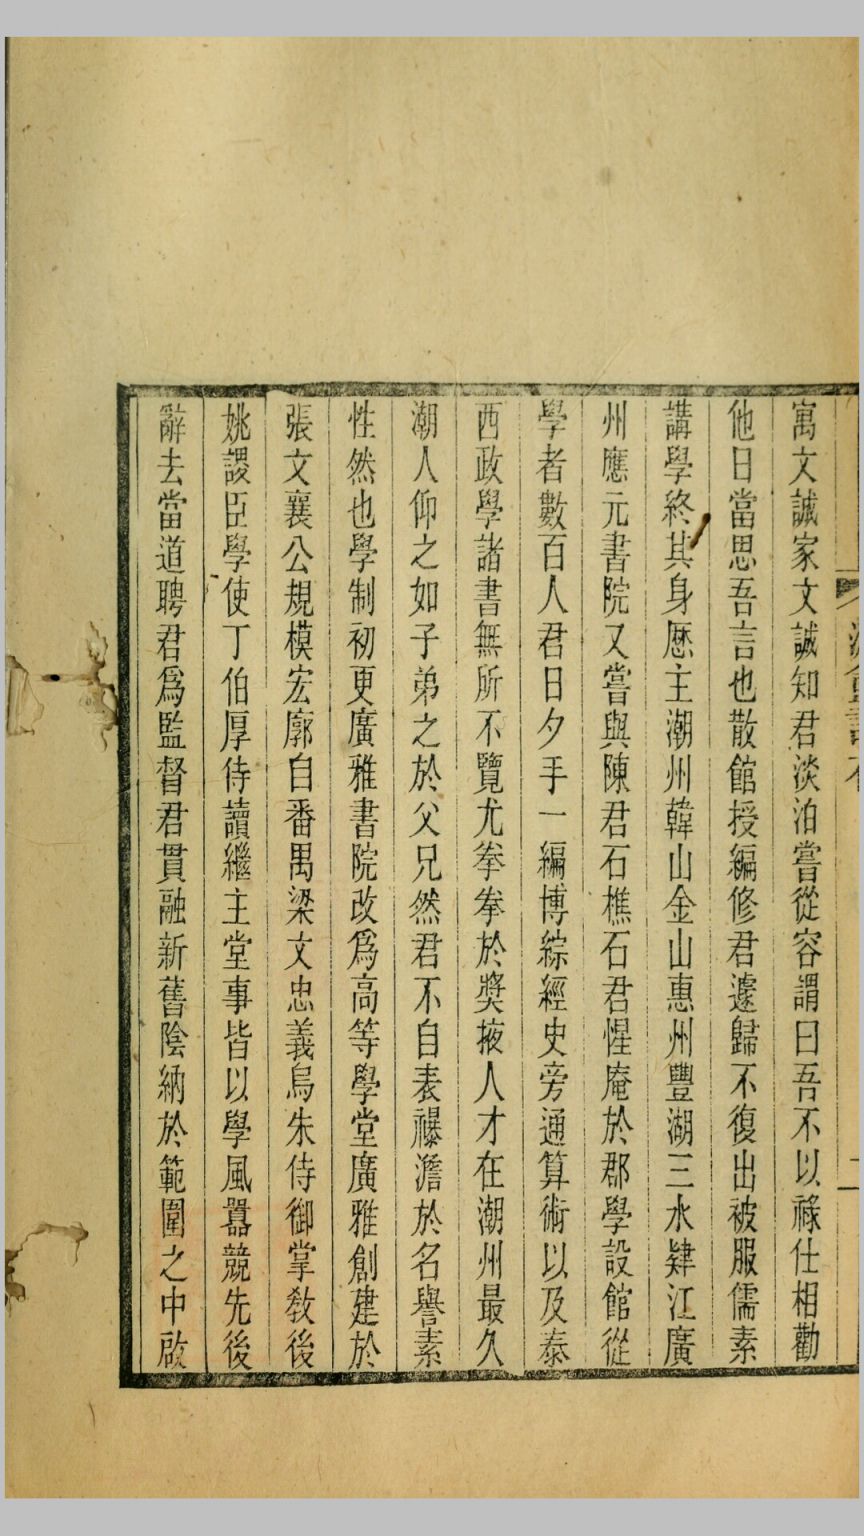 寓文誠家文誠知君淡泊嘗從容謂曰吾不以祿仕相勸
他日當思吾言也散館授編修君遽歸不復出被服儒素
講學終其身歷主潮州韓山金山惠州豐湖三水肄江廣
州應元書院又嘗與陳君石樵石君惺庵於郡學設館從
學者數百人君日夕手一編博綜經史旁通算術以及泰
西政學諸書無所不覽尤拳拳於獎掖人才在潮州最久
潮人仰之如子弟之於父兄然君不自表襮澹於名譽素
性然也學制初更廣雅書院改爲高等學堂廣雅創建於
張文襄公規模宏廓自番禺梁文忠義烏朱侍御掌敎後
姚諼臣學使丁伯厚侍讀繼主堂事皆以學風囂競先後
辭去當道聘君爲監督君貫融新舊陰納於範圍之中啟